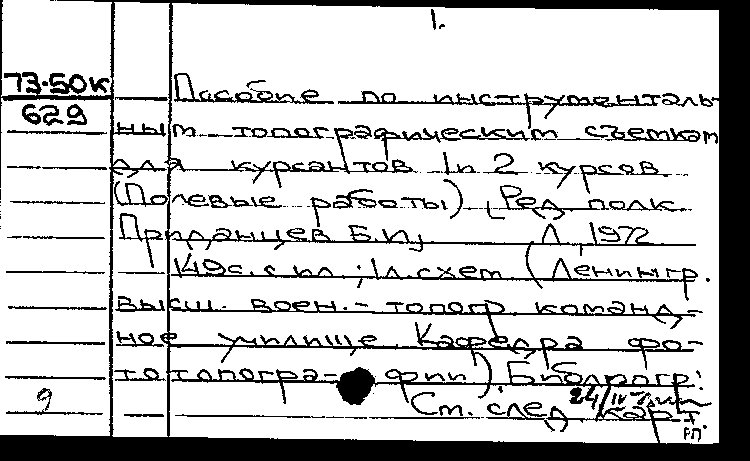 1.
73-50к
629
Пособие по инструменталь-
ным топографическим съемкам
для курсантов 1 и 2 курсов.
(Полевые работы). [Ред. полк.
Приданцев Б.И.] Л., 1972
149 с. с ил.; 1 л. схем. (Ленингр.
высш. воен.-топогр. команд-
ное училище. Кафедра фо-
тотопографии). Библиогр:
9
24/IV
Ст. след. карт
РП